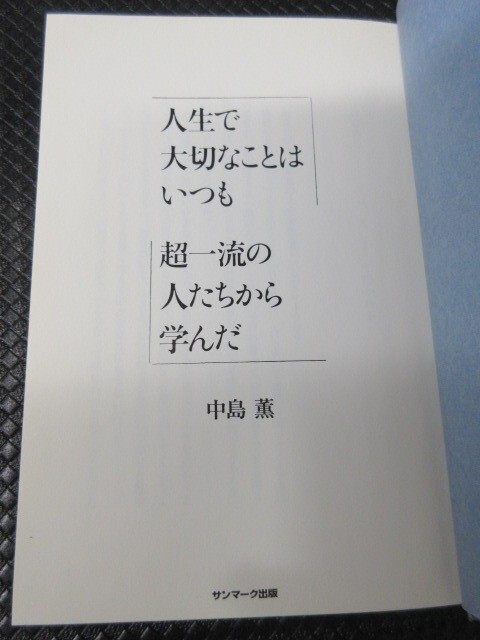 人生で
大切なことは
いつも
超一流の
人たちから
学んだ
中島 薫
サンマーク出版